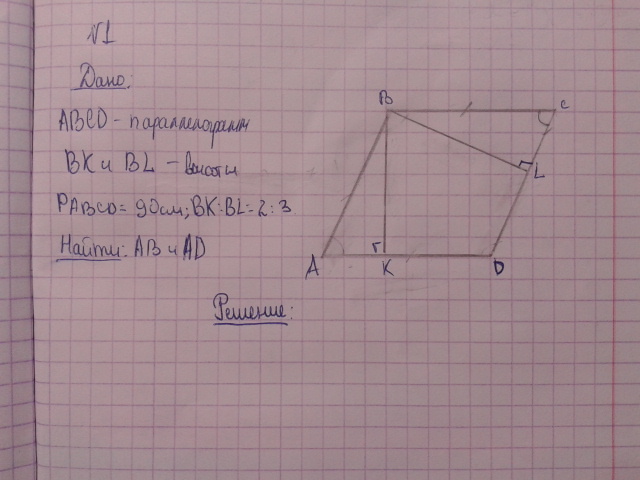 №1
Дано:
ABCD - параллелограмм
BK и BL - высоты
PABCD = 90 см; BK:BL = 2:3.
Найти: AB и AD
Решение:
B
C
L
A
K
D